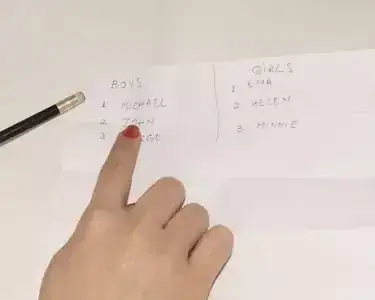 BOYS
1 MICHAEL
2 JOHN
3
GIRLS
1 EMA
2 HELEN
3 MINNIE